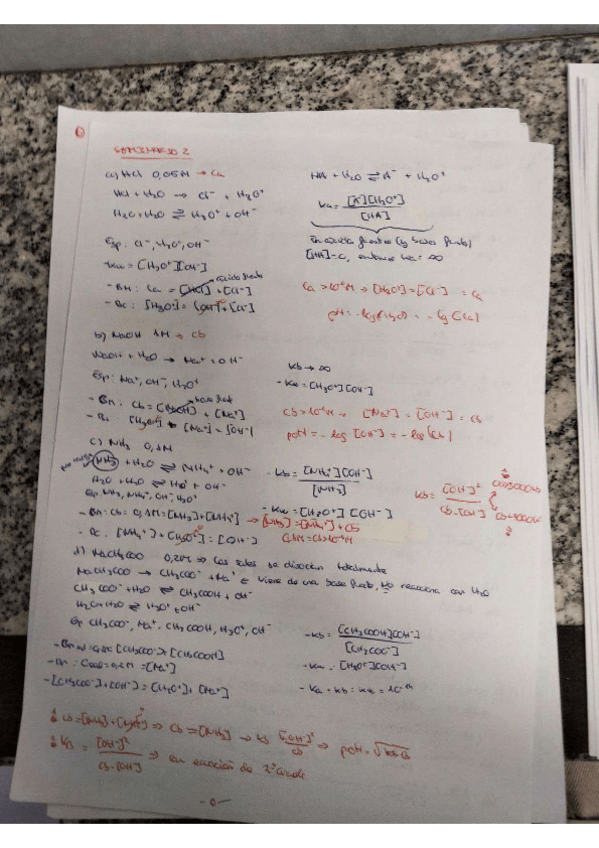 ①
SEMINARIO 2
a) HCl 0,05M → Ca
HCl + H2O → Cl⁻ + H3O⁺
H2O + H2O ⇌ H3O⁺ + OH⁻
Esp: Cl⁻, H3O⁺, OH⁻
- Kw = [H3O⁺][OH⁻]
ácido fuerte
- BM: Ca = [HCl] + [Cl⁻]
- BC: [H3O⁺] = [OH⁻] + [Cl⁻]
HA + H2O ⇌ A⁻ + H3O⁺
Ka = [A⁻][H3O⁺] / [HA]
[HA] = 0, entonces Ka = ∞
Ca > 10⁻⁶M → [H3O⁺] = [Cl⁻] = Ca
pH = -log [H3O⁺] = -log [Ca]
b) NaOH 1M → Cb
NaOH + H2O → Na⁺ + OH⁻
Esp: Na⁺, OH⁻, H3O⁺
- BM: Cb = [NaOH] + [Na⁺]
- BC: [H3O⁺] + [Na⁺] = [OH⁻]
Kb → ∞
- Kw = [H3O⁺][OH⁻]
Cb > 10⁻⁶M → [Na⁺] = [OH⁻] = Cb
pOH = -log [OH⁻] = -log [Cb]
c) NH3 0,1M
NH3 + H2O ⇌ NH4⁺ + OH⁻
H2O + H2O ⇌ H3O⁺ + OH⁻
Esp: NH3, NH4⁺, OH⁻, H3O⁺
- BM: Cb = 0,1M = [NH3] + [NH4⁺]
- BC: [NH4⁺] + [H3O⁺] = [OH⁻]
- Kb = [NH4⁺][OH⁻] / [NH3]
- Kw = [H3O⁺][OH⁻]
0,1M = Cb > 10⁻⁶M
Kb = [OH⁻]² / Cb - [OH⁻]
d) NaCH3COO 0,2M ⇒ Las sales se disocian totalmente
NaCH3COO → CH3COO⁻ + Na⁺ viene de una base fuerte, No reacciona con H2O
CH3COO⁻ + H2O ⇌ CH3COOH + OH⁻
H2O + H2O ⇌ H3O⁺ + OH⁻
Esp: CH3COO⁻, Na⁺, CH3COOH, H3O⁺, OH⁻
[CH3COO⁻] + [CH3COOH]
= 0,2M = [Na⁺]
- [CH3COO⁻] + [OH⁻] = [H3O⁺] + [Na⁺]
- Kb = [CH3COOH][OH⁻] / [CH3COO⁻]
- Kw = [H3O⁺][OH⁻]
- Ka · Kb = Kw = 10⁻¹⁴
Kb = [OH⁻]² / Cb - [OH⁻] ⇒ con ecuación de 2º grado